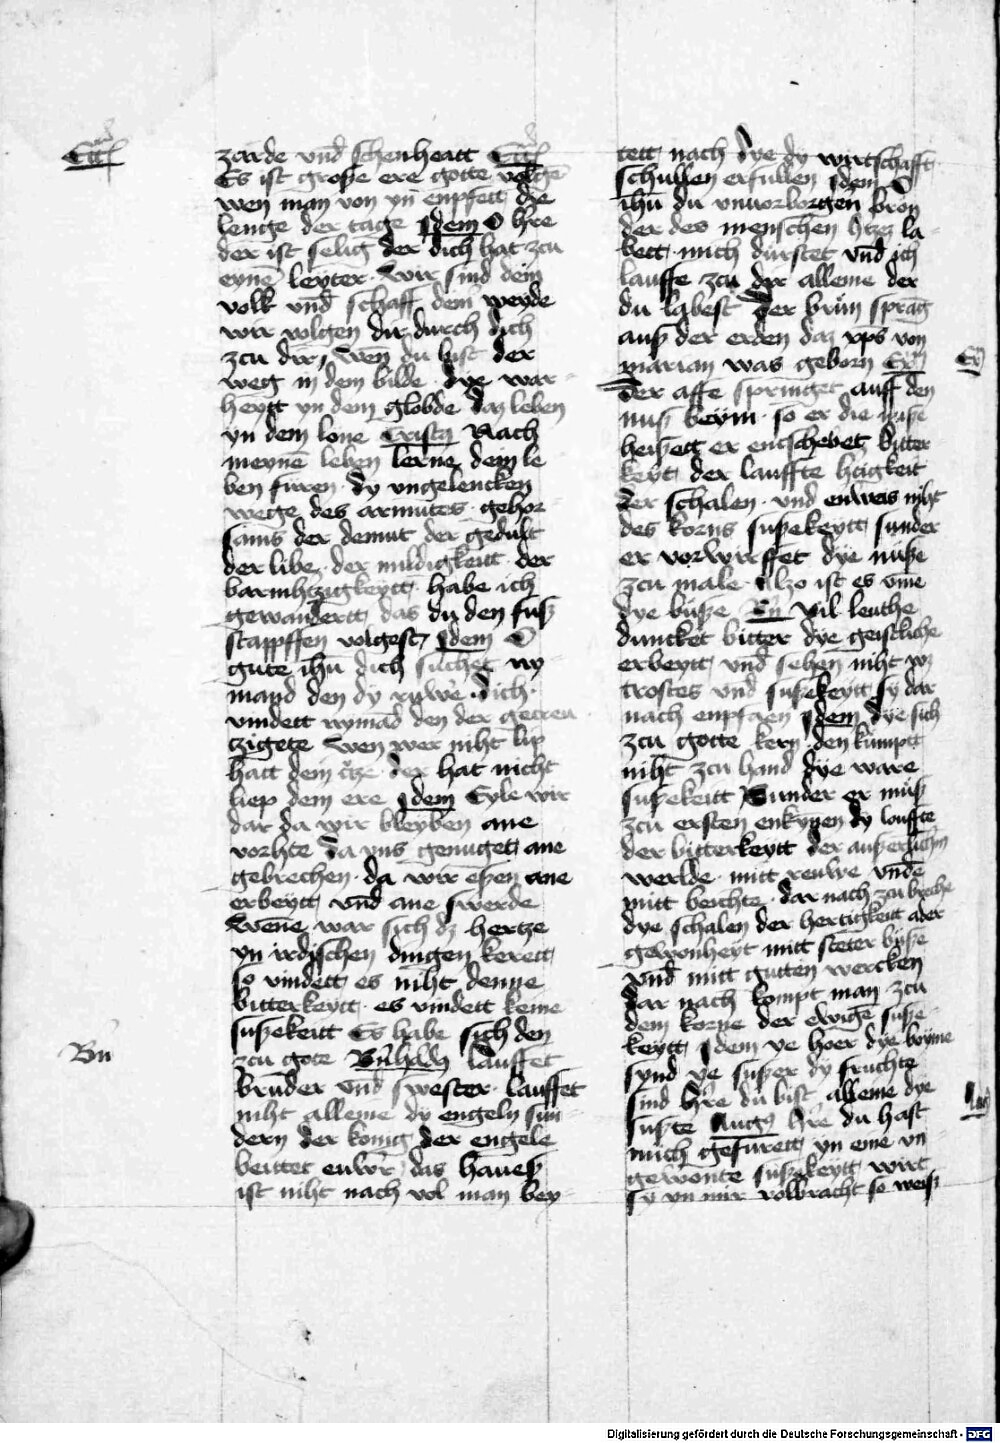 zarde vnd schenheatt Ecc͡s
Es ist große ere gotte volgē
wen man von yn enpfett die
lenge der tage Idem O h're
der ist selig der dich hat zcu
eynē leyter. Wir sind dein
volk vnd schaff dem weyde
wir volgen dir durch dich
zcu dir, wen du bist der
weg in dem bilde. dye war-
heytt yn dem globde daz leben
yn dem lone Cristꝰ Nach
meynē leben lerne dein le
ben füren. dy vngelencken
wege des armutes. gehor
sams der demut der gedult
der libe. der mildigkeitt. der
barmh'tzigkeytt. habe ich
gewandertt, das du den fuß
stappffen volgest, Idem O
gute ih'u dich suchet ny-
mand den dy ruwe. dich.
vindett nymād den der getreu
wen wer niht lip
hatt dem der hat nicht
liep dem ere Idem Eyle wir
dar da wir bleyben ane
vorhte da vns genuget ane
gebrechen. da wir eßen ane
erbeytt vnd ane swerde
Wēne war sich dz hertze
yn irdischen dingen kerett
so vindett es niht denne
bitterkeytt. es vindett keine
sußekeitt Es habe sich den
zcu gote Bn̄hād' lauffet
bruder vnd swester. lauffet
niht alleine dy engeln sun-
dern der konig der engele
beittet euw'r, das haueß
ist niht nach vol man bey-
Ecc͡s
Bn̄
tett nach dye dy wirtschafft
schullen erfullen Idem O
ih'u du vnuorborgen bron
der des menschen h'tzen la-
bett. mich dürstet vnd ich
lauffe zcu dir alleine der
du labest Der brun sprāg
auß der erden daz xp̄s von
marian was geborn
Der affe springet auff den
nuß beym. so er die nuße
beißett er entschebet bitter
keyt der lauffte h'tigkeit
der schalen. vnd etwas niht
des korns sußekeytt sunder
er vorwirffet dye nuße
zcu male. Alzo ist es vme
dye buße Bn̄ Vil leuthe
duncket bitter dye geistliche
erbeytt vnd sehen niht w
trostes vnd sußekeytt sy dar
nach enpfaen Idem dye sich
zcu gotte kern. den kumptt
niht zcu hand dye ware
sußekeitt Sunder er muß
zcu ersten enkynen dy louffte
der bitterkeytt der außerlichn
werlde. mitt reuwe vnde
mitt beichte. dar nach zcu breche
dye schalen der hertigkeitt ader
gewonheyt mitt steter buße
vnd mitt gutten wercken
dar nach kompt man zcu
dem korne der ewige suße-
keytt Idem ye hoer dye boyme
synd ye sußer dy fruchte
sind h're du bist alleine dye
sußte Augꝰ h're du hast
mich gefurett yn eine vn
gewonte sußekeytt wirt
sy yn mir volbracht so weiß
Digitalisierung gefördert durch die Deutsche Forschungsgemeinschaft - DFG